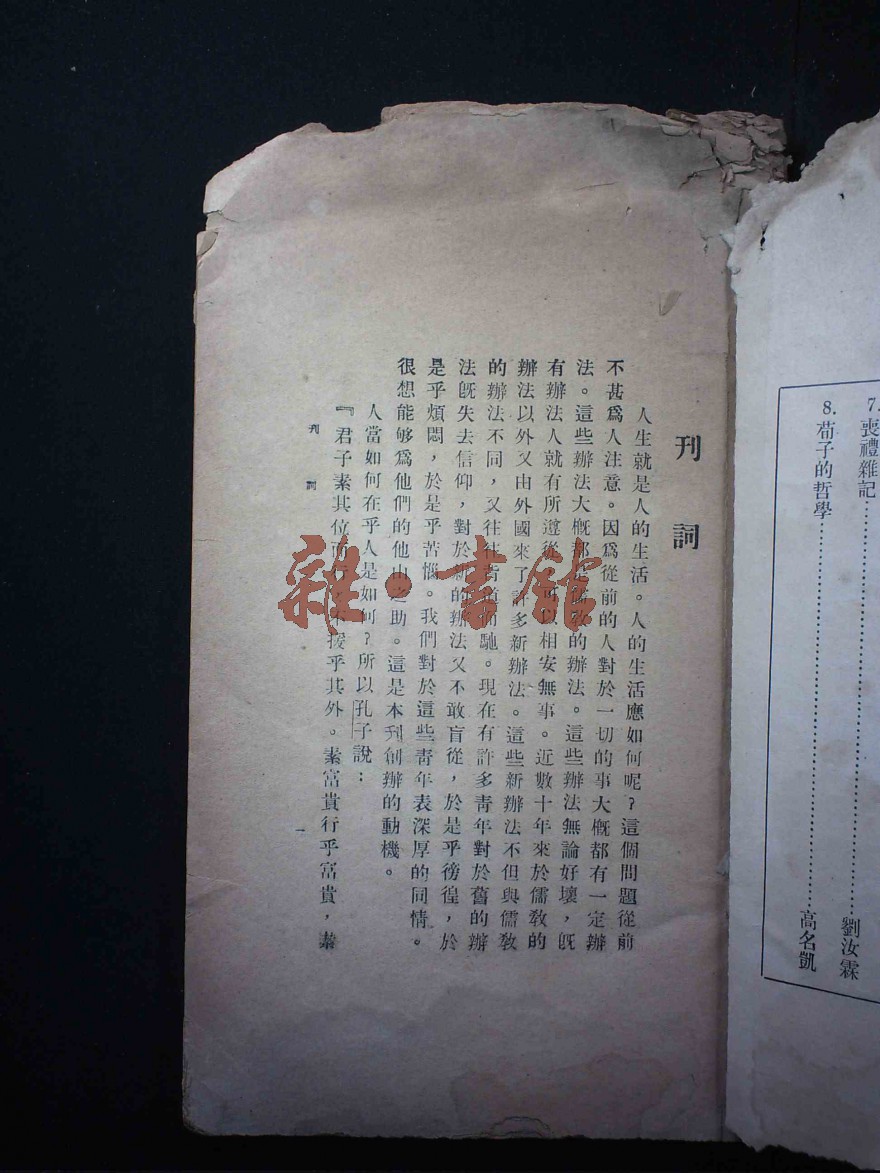 7. 喪禮雜記……劉汝霖
8. 荀子的哲學……高名凱
刊詞
人生就是人的生活。人的生活應如何呢？這個問題從前
不甚爲人注意。因爲從前的人對於一切的事大槪都有一定辦
法。這些辦法大槪都是儒敎的辦法。這些辦法無論好壞，旣
有辦法人就有所遵從，所以相安無事。近數十年來於儒敎的
辦法以外又由外國來了許多新辦法。這些新辦法不但與儒敎
的辦法不同，又往往背道而馳。現在有許多靑年對於舊的辦
法旣失去信仰，對於新的辦法又不敢盲從，於是乎徬徨，於
是乎煩悶，於是乎苦惱。我們對於這些靑年表深厚的同情。
很想能够爲他們的他山之助。這是本刋創辦的動機。
人當如何在乎人是如何？所以孔子說：
『君子素其位而行，不援乎其外。素富貴行乎富貴，素
刊詞
一
雜·書館